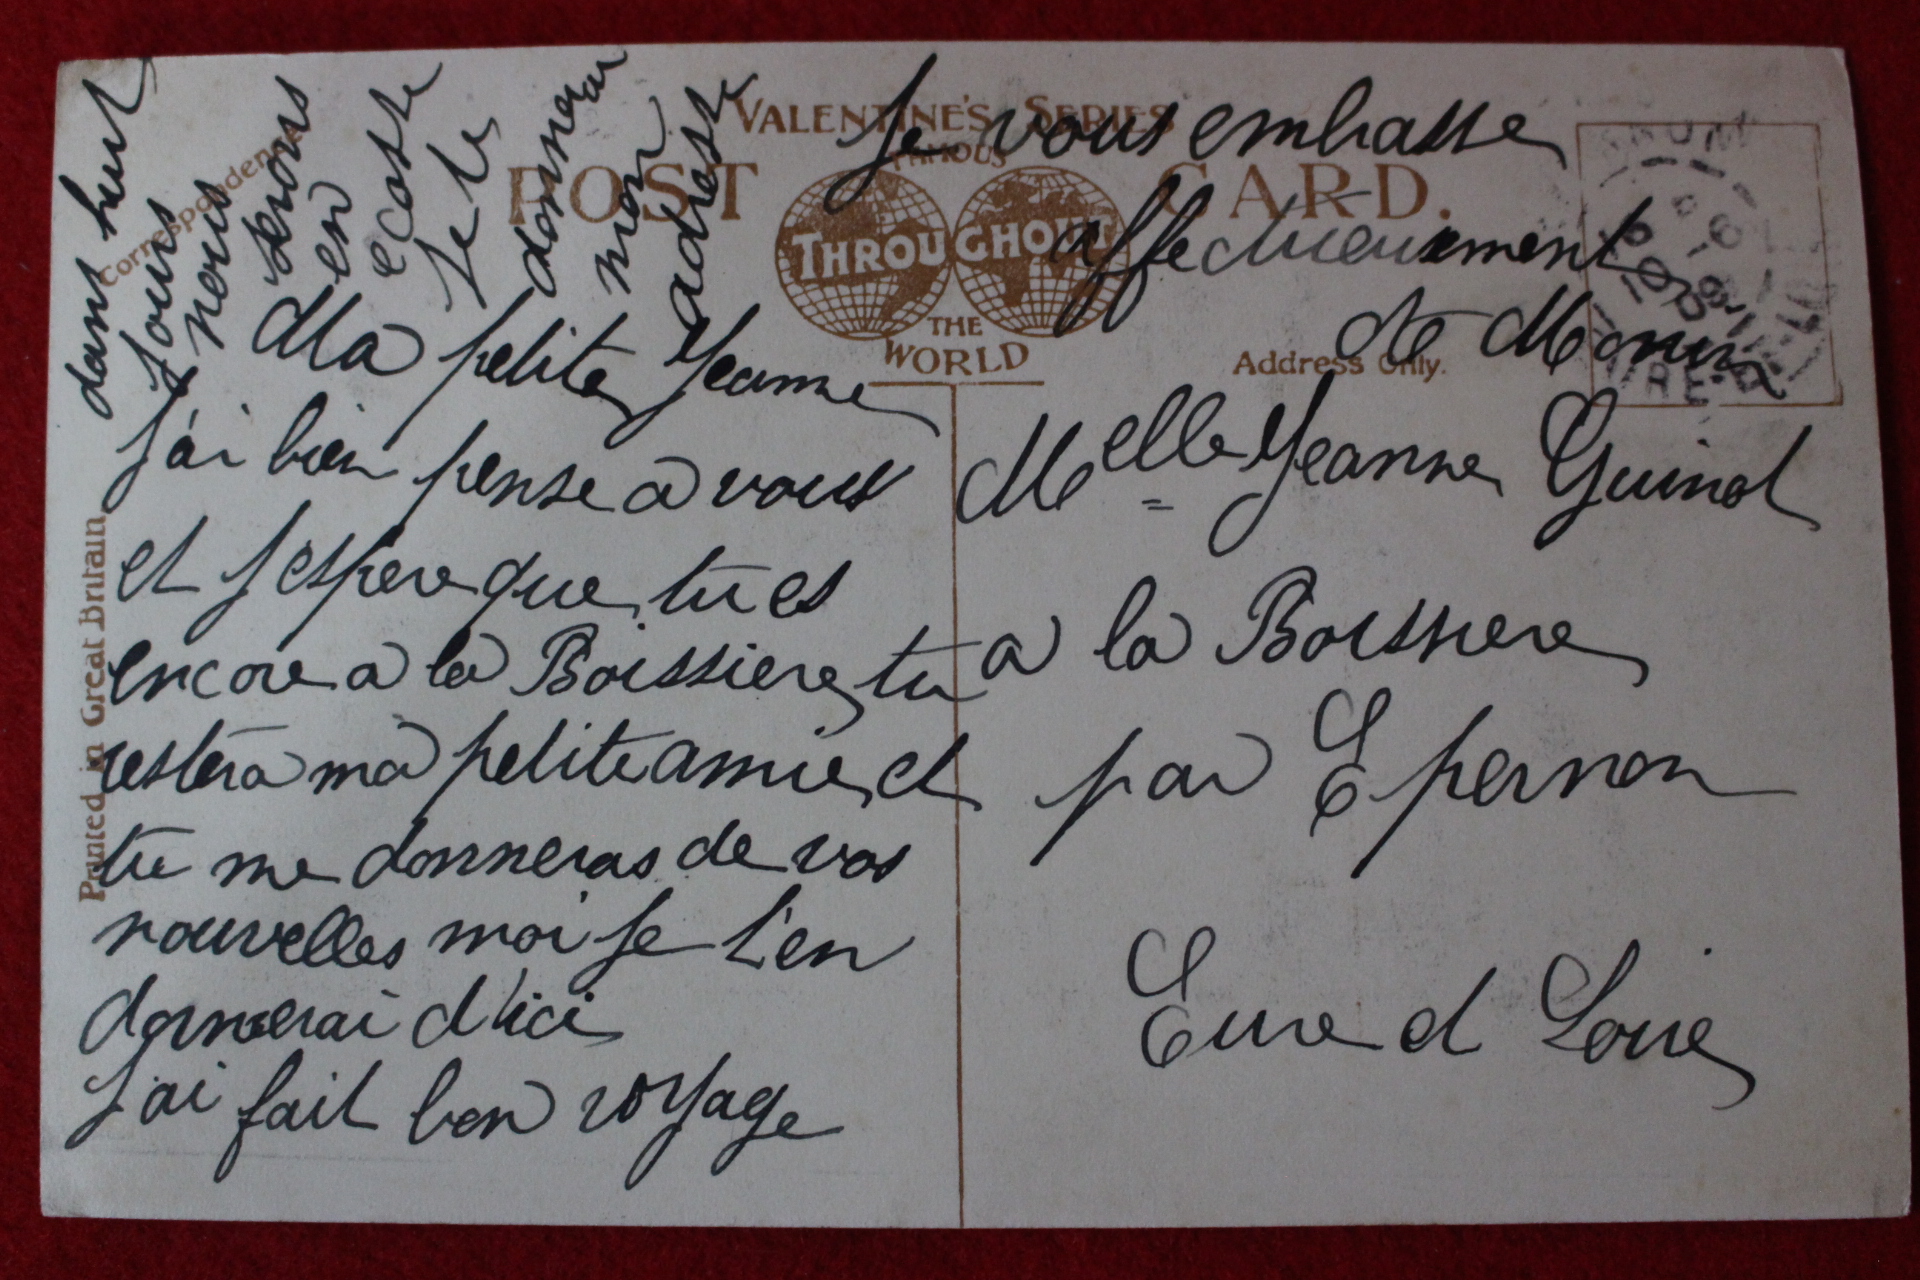 VALENTINE'S SERIES
FAMOUS
POST CARD.
THROUGHOUT
THE
WORLD
Correspondence
Address Only.
Printed in Great Britain
Ma petite Jeanne
j'ai bien pense a vous
et j'espere que tu es
encore a la Boissiere tu
restera ma petite amie et
tu me donneras de vos
nouvelles moi je t'en
donnerai d'ici
j'ai fait bon voyage
dans huit
jours
nous
serons
en
ecosse
je te
donnerai
mon
adresse
Je vous embrasse
affectueusement
Melle Jeanne Guinot
a la Boissiere
par Epernon
Eure et Loire